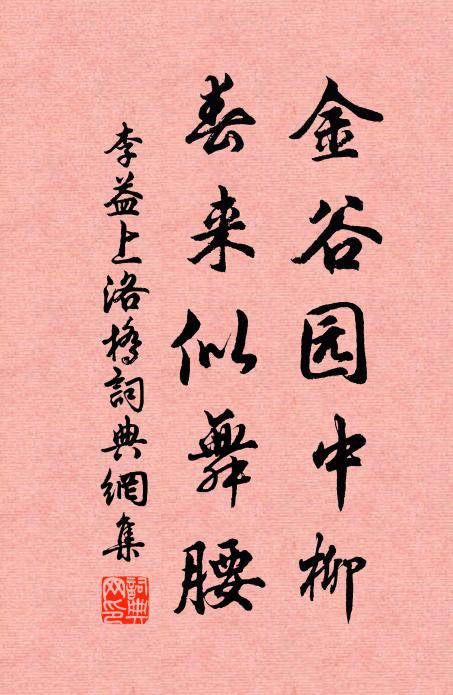 金谷园中柳
春来似舞腰
李益上洛橋詞典網集
詞典
网印